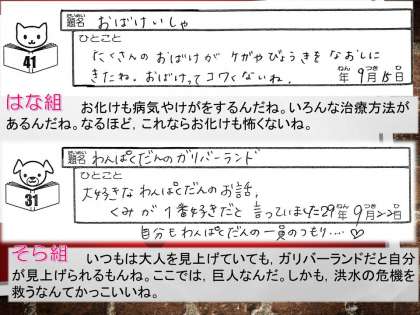 題名 おばけいしゃ
ひとこと
たくさんのおばけが ケガやびょうきをなおしに
きたね。おばけってコワくないね。
年 9月15日
41
はな組 お化けも病気やけがをするんだね。いろんな治療方法が
あるんだね。なるほど，これならお化けも怖くないね。
題名 わんぱくだんのガリバーランド
ひとこと
大好きなわんぱくだんのお話，
くみが1番好きだと言っていました 29年9月22日
自分もわんぱくだんの一員のつもり....♡
31
そら組 いつもは大人を見上げていても，ガリバーランドだと自分
が見上げられるもんね。ここでは，巨人なんだ。しかも，洪水の危機を
救うなんてかっこいいね。